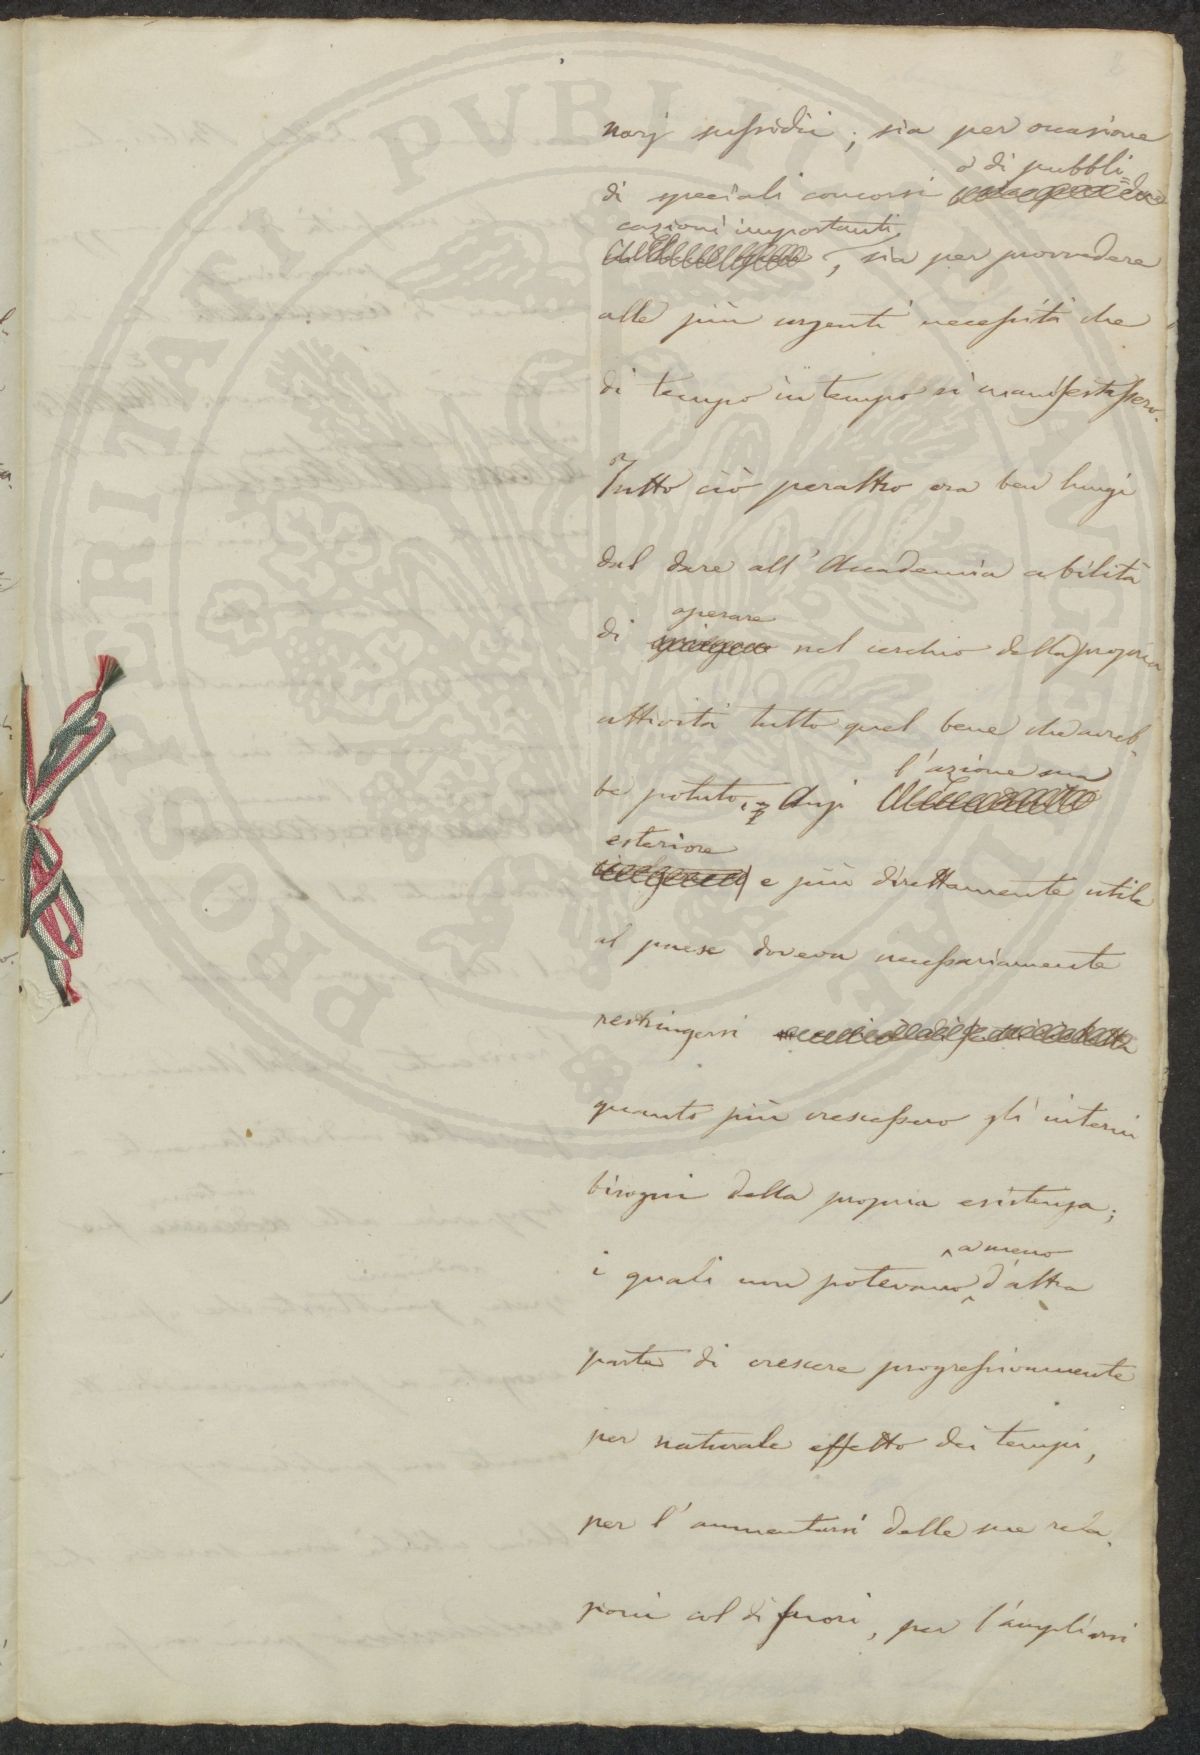 2
narj sussidii; sia per occasione
o di pubbli=
di speciali concorsi
cazioni importanti
, sia per provvedere
alle più urgenti necessità che
di tempo in tempo si manifestassero.
Tutto ciò peraltro era ben lungi
dal dare all'Accademia abilità
operare
di nel cerchio della propria
attività tutto quel bene che avreb-
l'azione sua
be potuto, Anzi
esteriore
e più direttamente utile
al paese doveva necessariamente
restringersi
quanto più crescessero gli interni
bisogni della propria esistenza;
a meno
i quali non potevano d'altra
parte di crescere progressivamente
per naturale effetto dei tempi,
per l'aumentarsi delle sue rela-
zioni col di fuori, per l'ampliarsi
PUBLICAE
PROSPERITATI